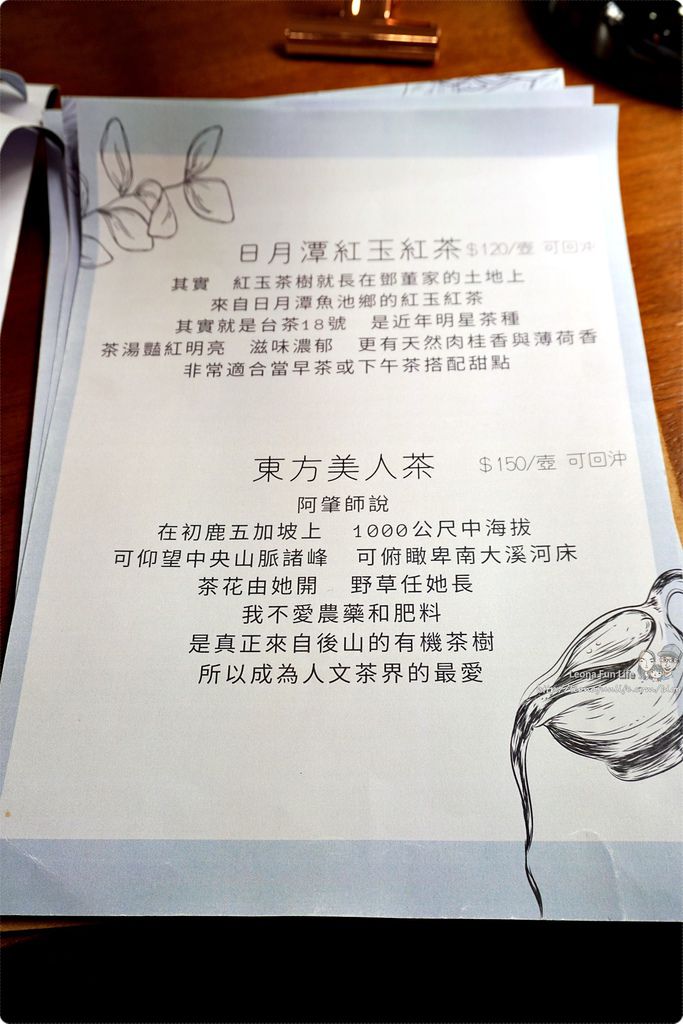 日月潭紅玉紅茶 $120/壺 可回沖
其實 紅玉茶樹就長在鄧董家的土地上
來自日月潭魚池鄉的紅玉紅茶
其實就是台茶18號 是近年明星茶種
茶湯豔紅明亮 滋味濃郁 更有天然肉桂香與薄荷香
非常適合當早茶或下午茶搭配甜點
東方美人茶 $150/壺 可回沖
阿肇師說
在初鹿五加坡上 1000公尺中海拔
可仰望中央山脈諸峰 可俯瞰卑南大溪河床
茶花由她開 野草任她長
我不愛農藥和肥料
是真正來自後山的有機茶樹
所以成為人文茶界的最愛
Leona Fun Life